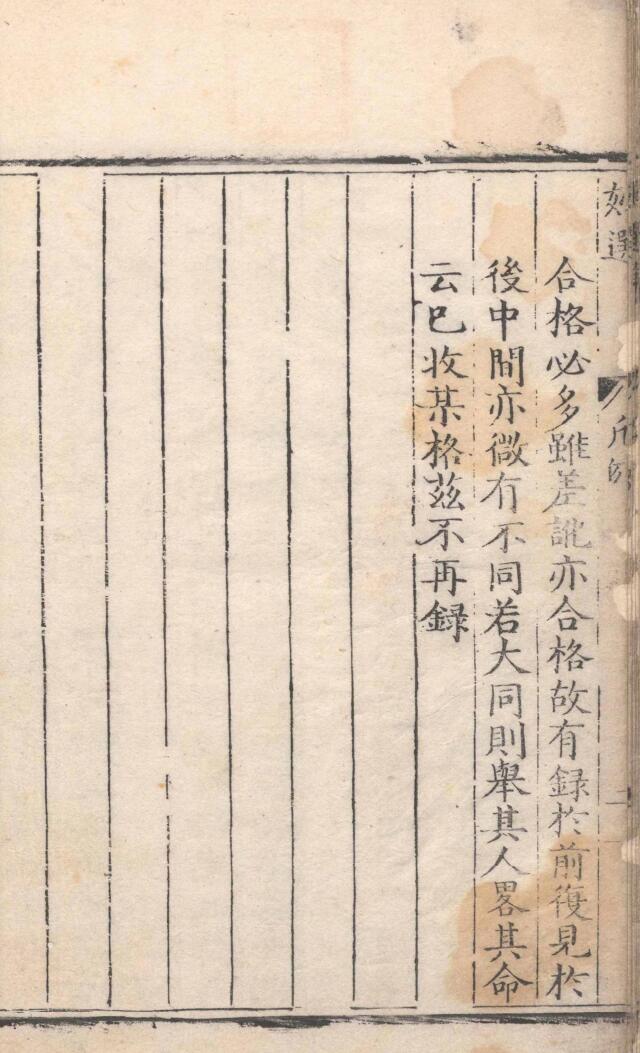 選
合格必多雖差訛亦合格故有録於前復見於
後中間亦微有不同若大同則舉其人畧其命
云已收某格兹不再録